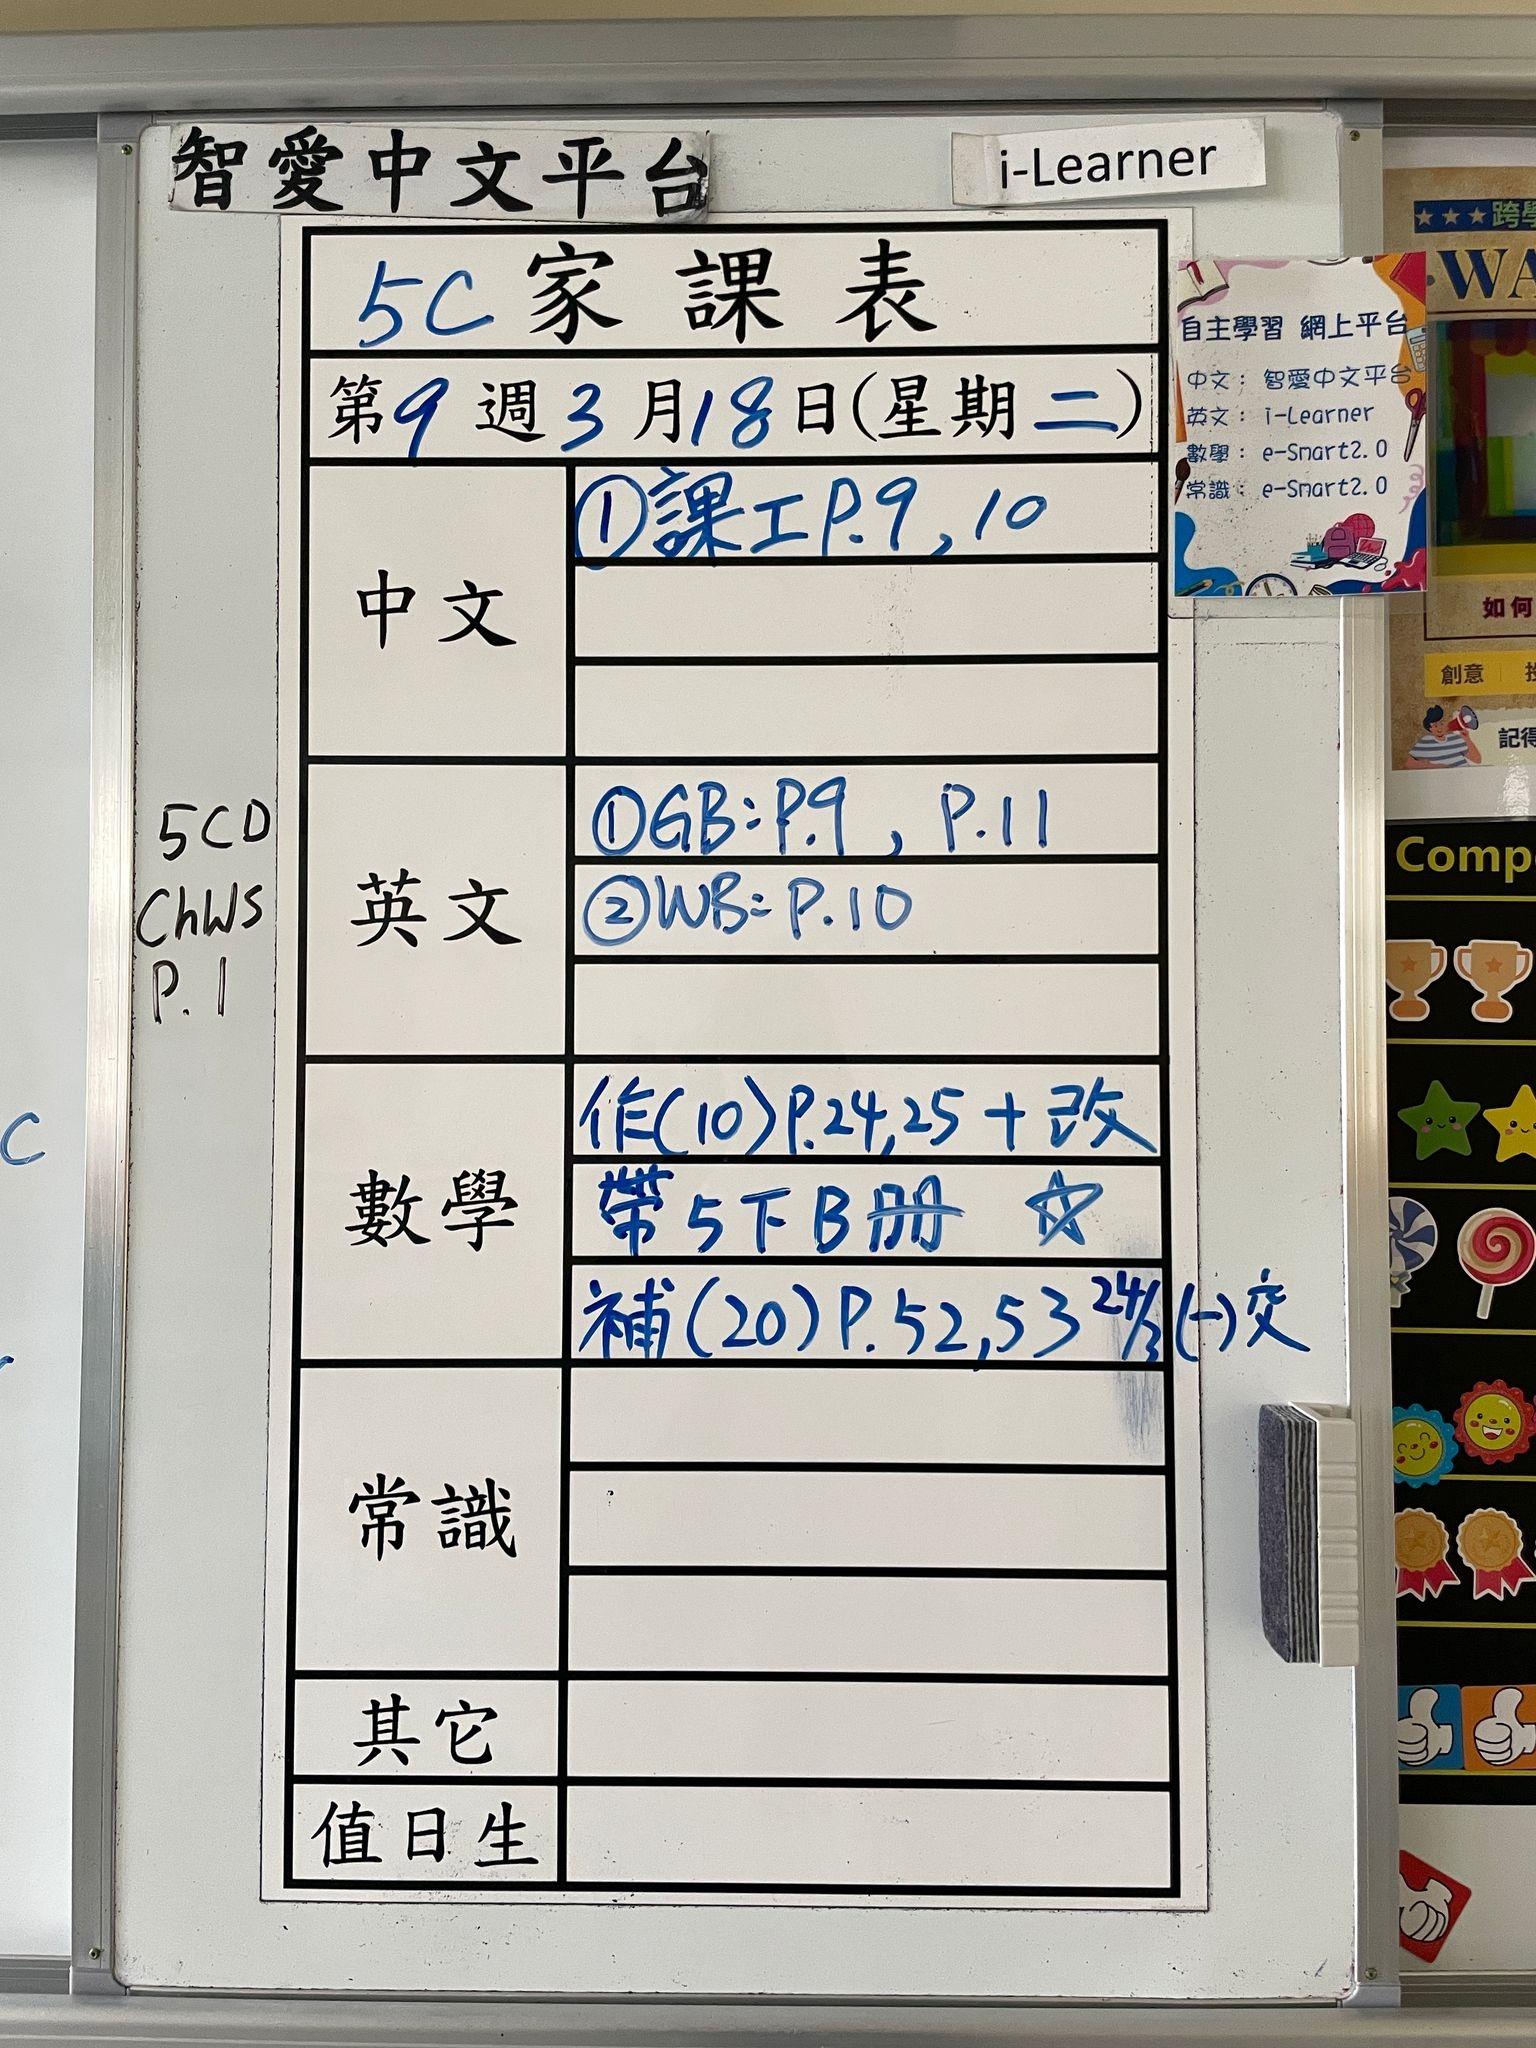 智愛中文平台
i-Learner
5C 家課表
第9週3月18日(星期二)
中文
①課工P.9, 10
英文
①GB:P.9, P.11
②WB:P.10
數學
作(10)P.24,25+改
帶5下B冊 ☆
補(20)P.52,53 24/3(一)交
常識
其它
值日生
5CD
ChWS
P.1
C
自主學習 網上平台
中文：智愛中文平台
英文：i-Learner
數學：e-Smart2.0
常識：e-Smart2.0
★★★跨學
WA
如何
創意
記得
Comp